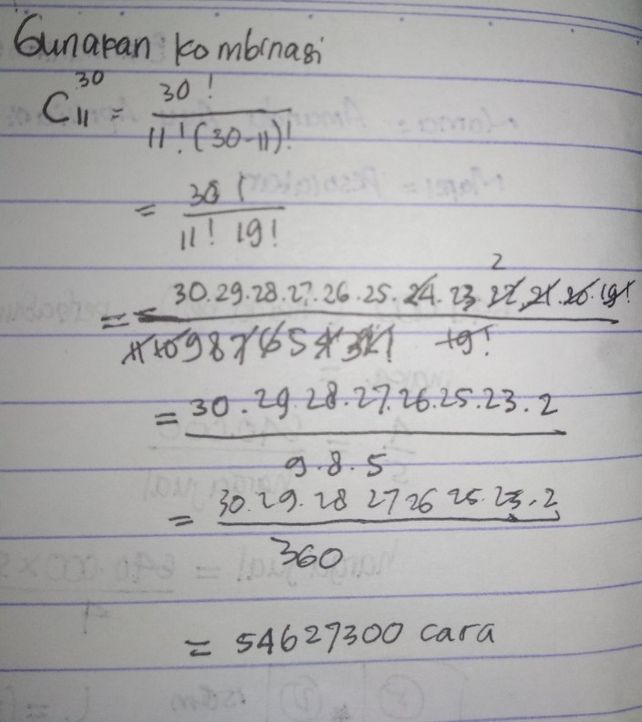 Gunakan kombinasi
C 30 11 = 30! / 11!(30-11)!
= 30! / 11! 19!
= 30.29.28.27.26.25.24.23 22.21.20.19! / 11 10 9 8 7 6 5 4 3 2 1 19!
2
= 30.29.28.27.26.25.23.2 / 9.8.5
= 30.29.28 27 26 25.23.2 / 360
= 54627300 cara